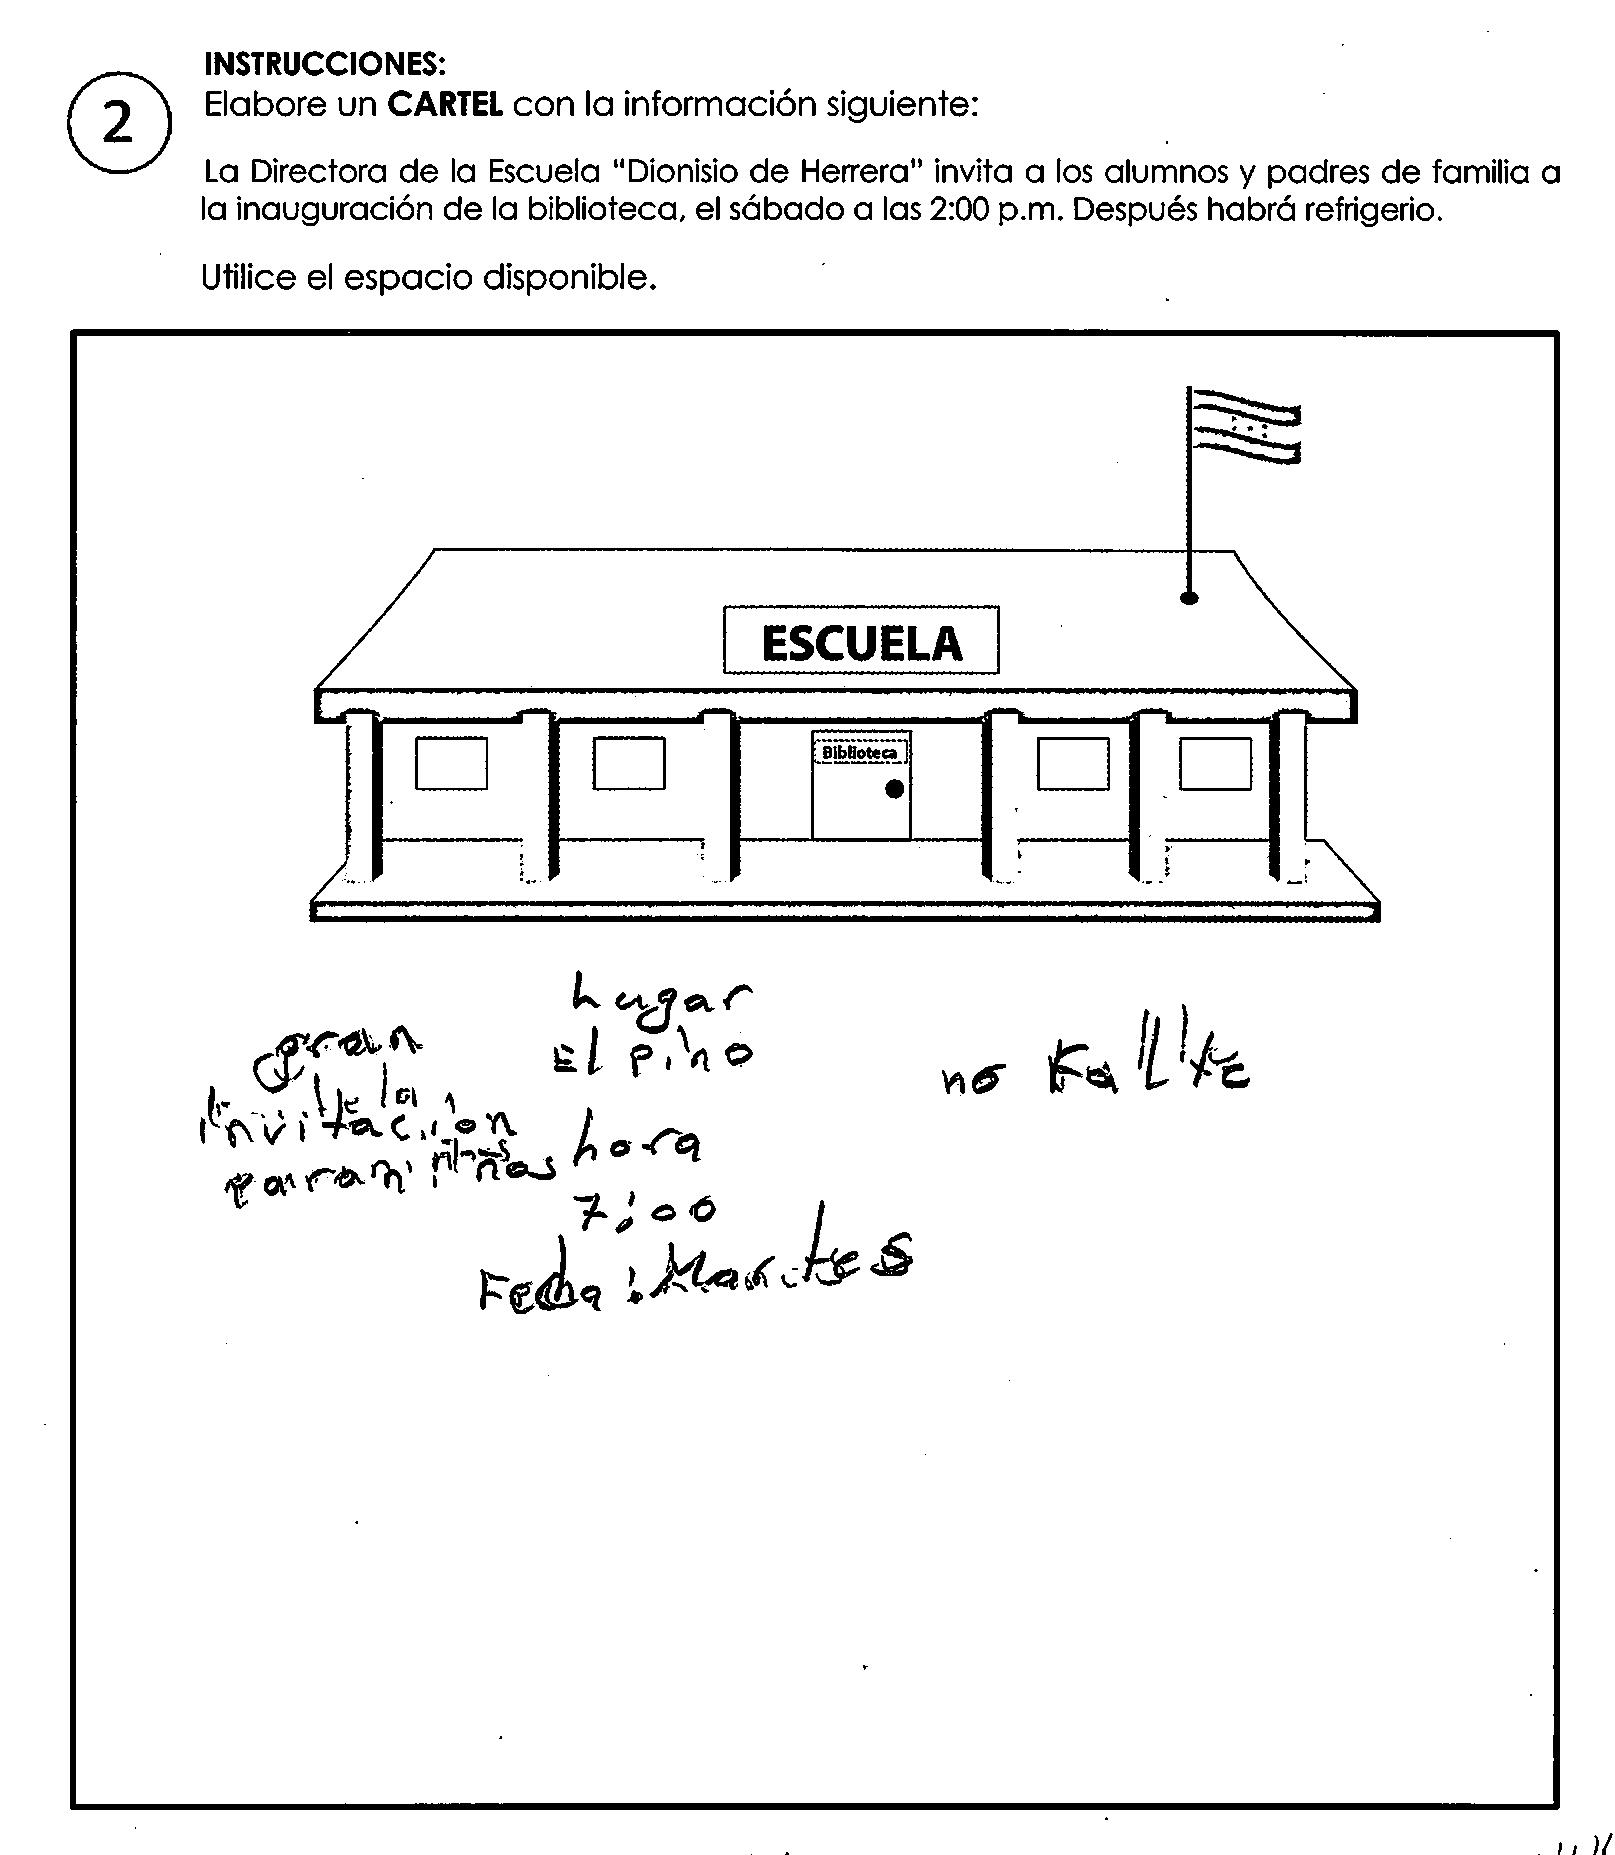 INSTRUCCIONES:
2
Elabore un CARTEL con la información siguiente:
La Directora de la Escuela "Dionisio de Herrera" invita a los alumnos y padres de familia a
la inauguración de la biblioteca, el sábado a las 2:00 p.m. Después habrá refrigerio.
Utilice el espacio disponible.
ESCUELA
Biblioteca
gran
invitación
para niños
hugar
El pino
hora
7:00
Fecha: Martes
no Fallte